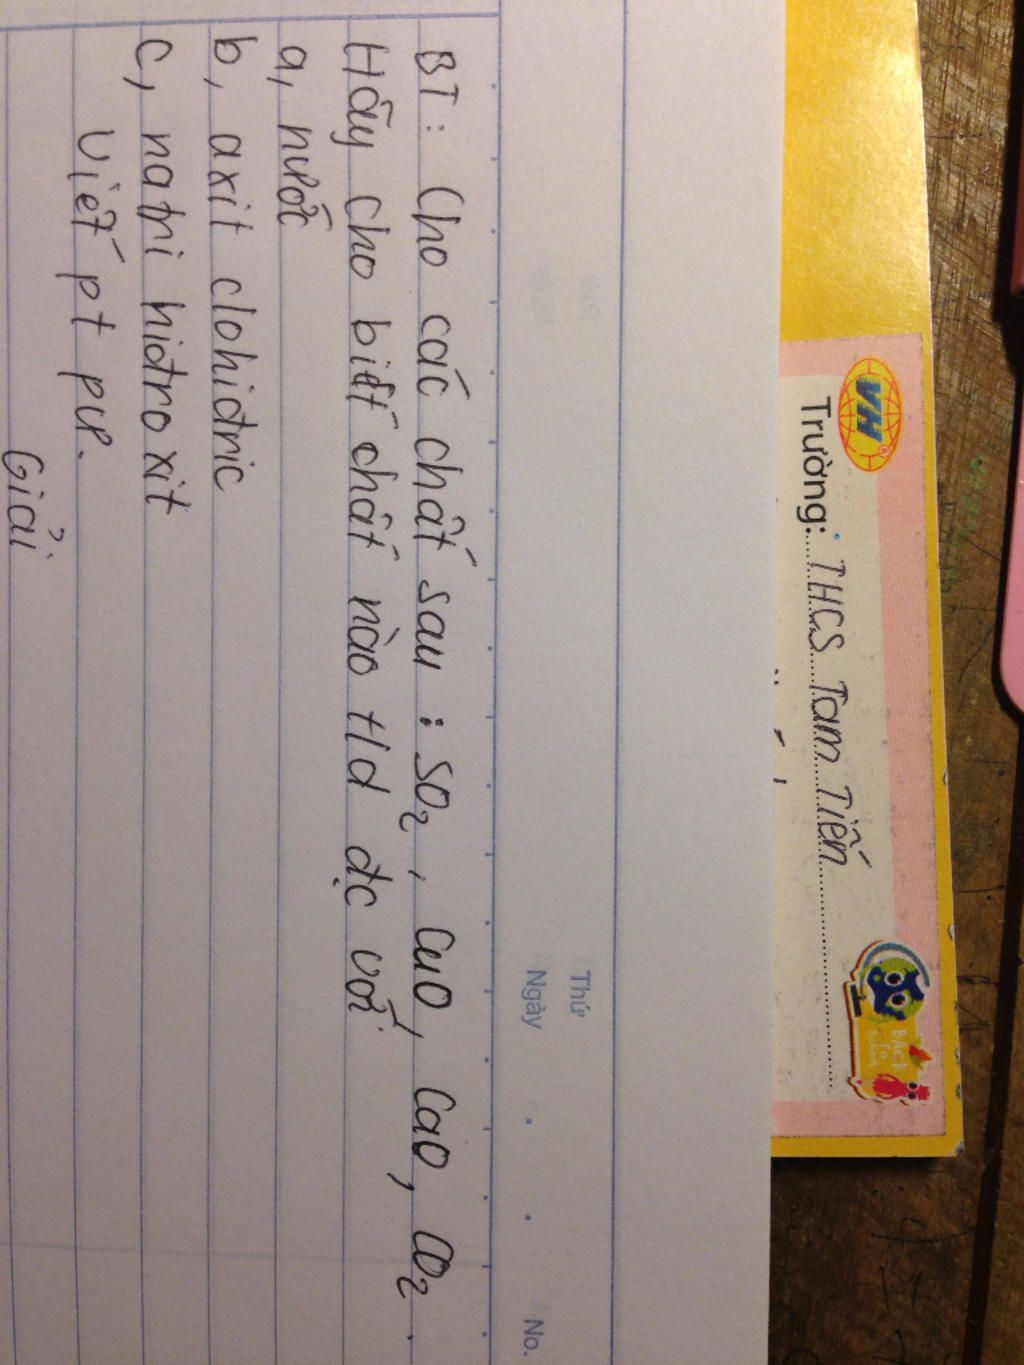 VH
Trường: THCS Tam Tiến
BACK TO SCHOOL
Thứ
Ngày
No.
BT: Cho các chất sau: SO2, CuO, CaO, CO2.
Hãy cho biết chất nào t/d đc với
a, nước
b, axit clohiđric
c, natri hiđroxit
Viết pt pư.
Giải